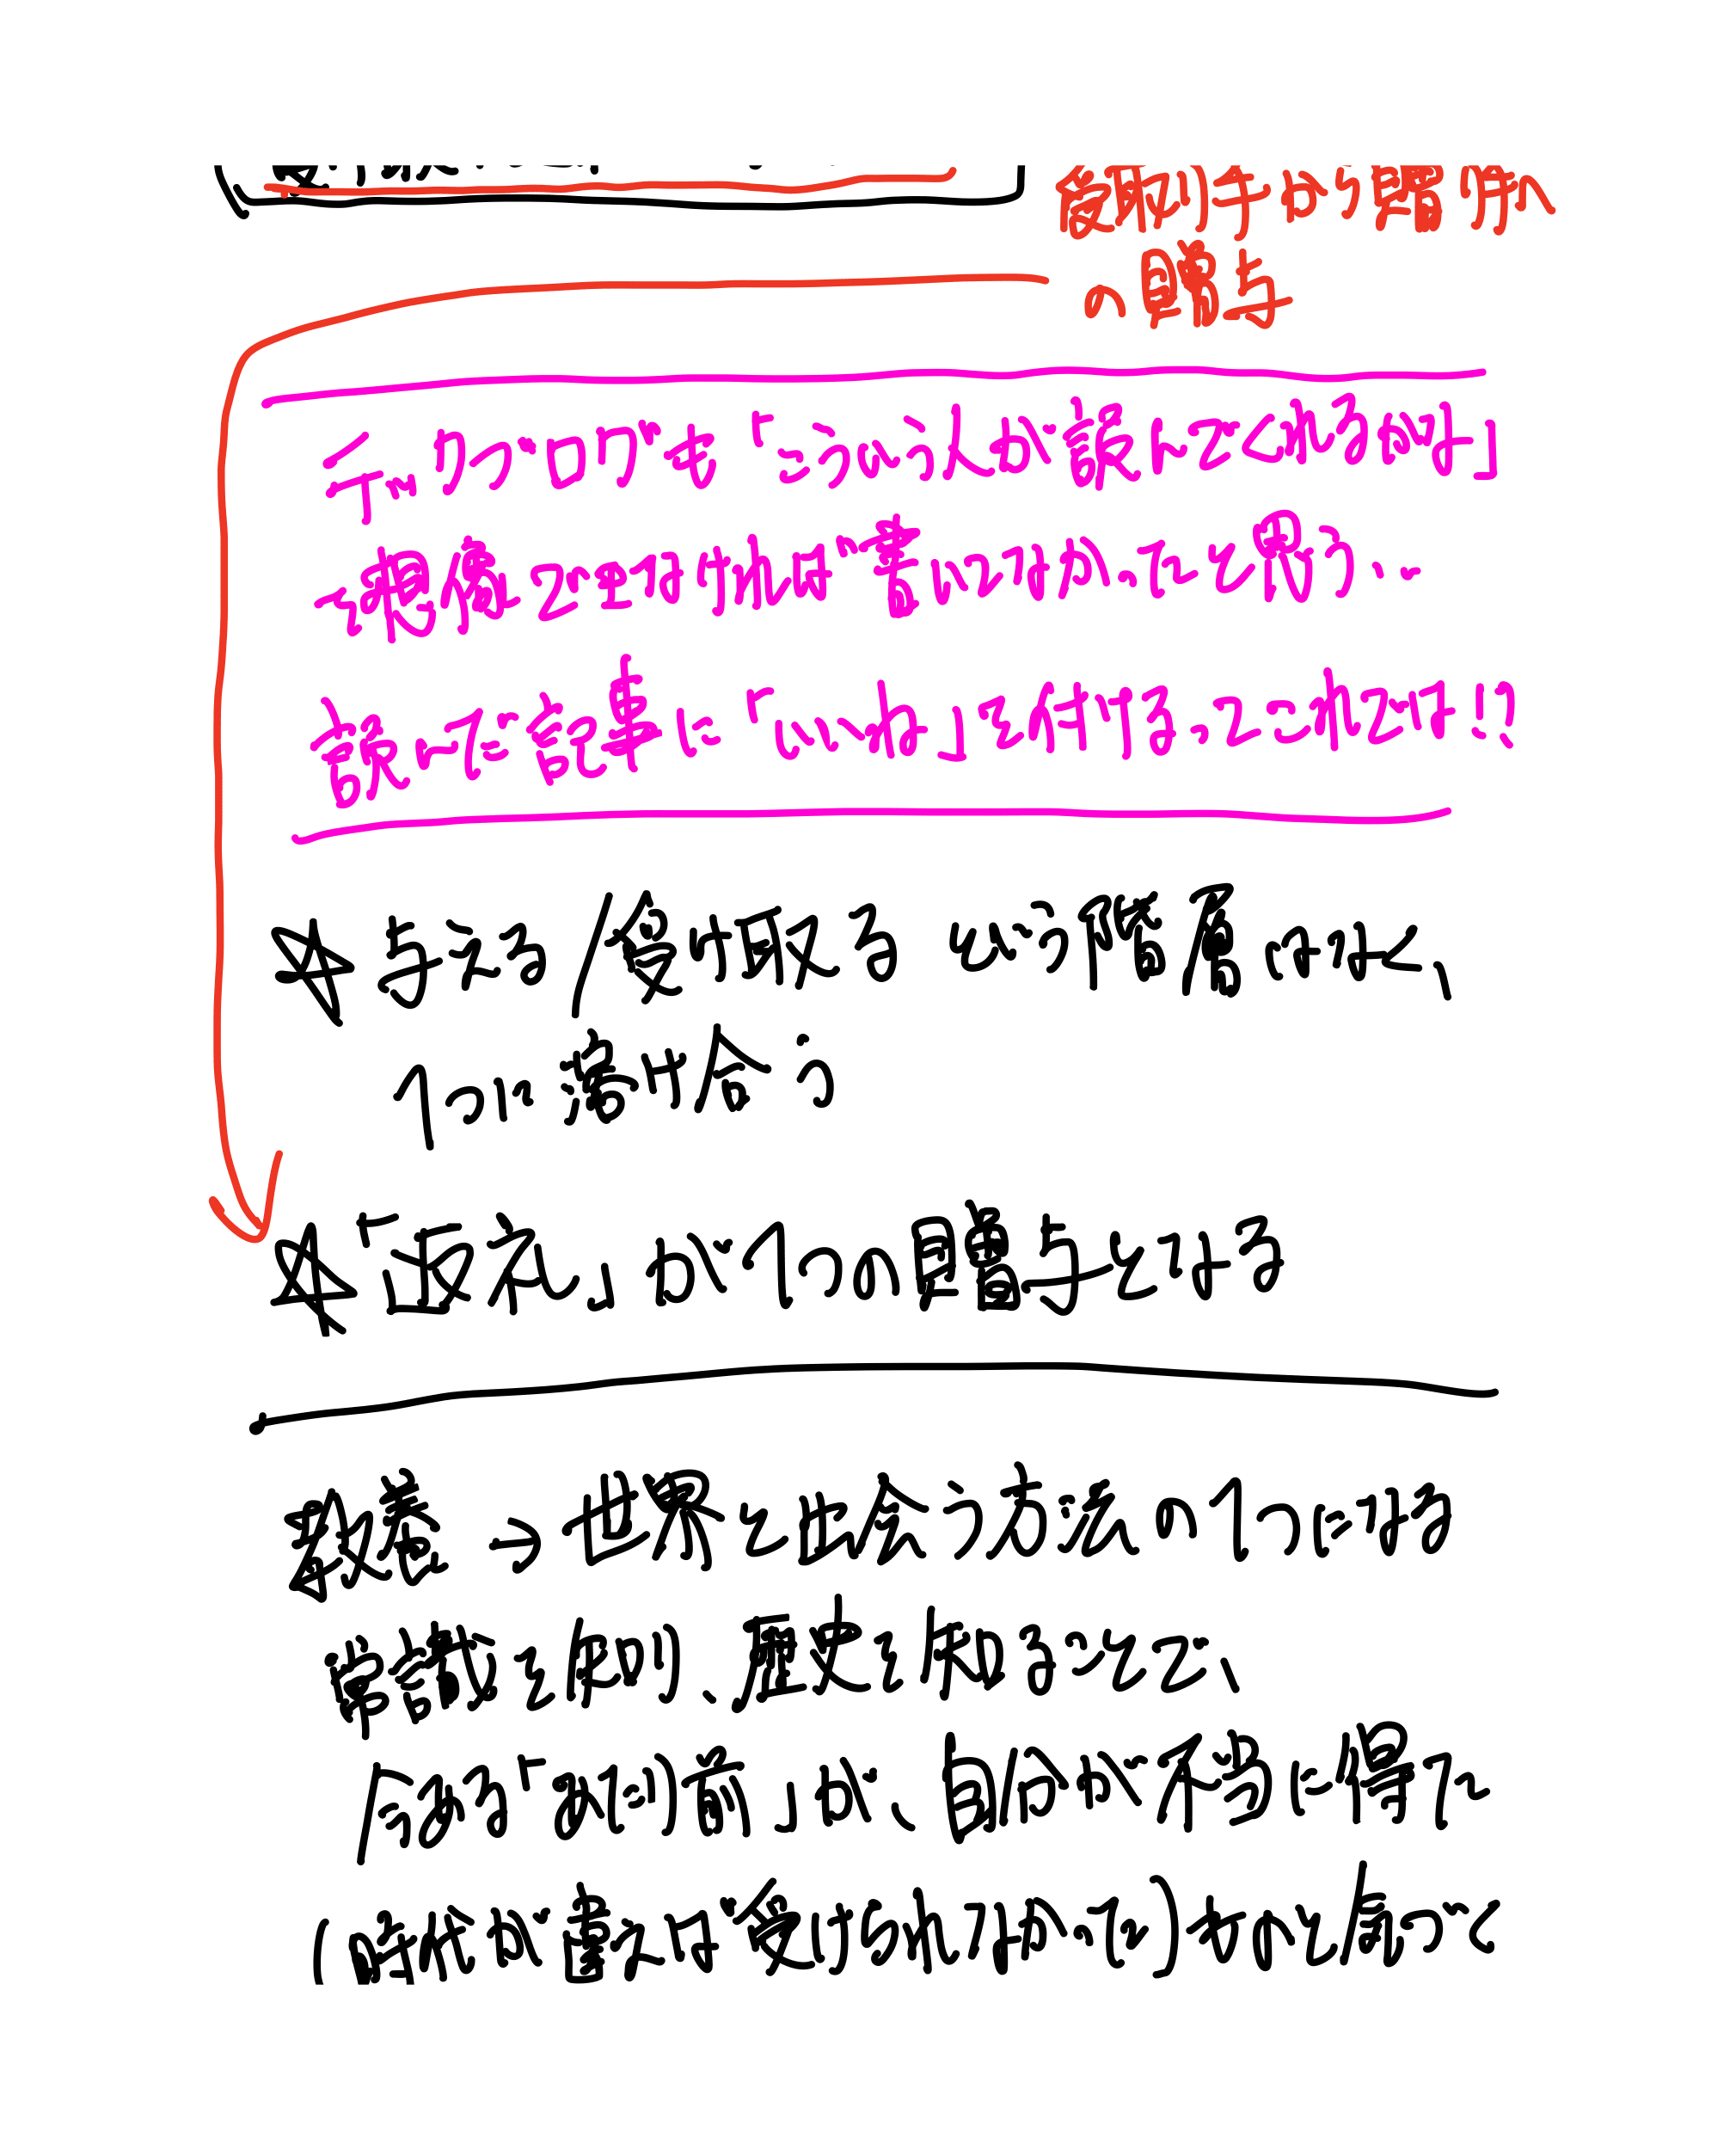 受け取り手から贈り手へ
の贈与
ブックブログも「こういう人が読んでくれるはず」
と想像して生み出さなければ書いてなかったと思う…
読んだ記事に「いいね」を付けるってこれでは!?
☆与える/受け取るという階層は、
1つに溶け合う
☆「返礼」が1つの贈与となる
教養→世界と出会う方法の1つになる
常識を疑り、歴史を知ることで、
今ある「当たり前」が、自分が不当に得た
(時代が違えば受けられてなかった)ものと気づく